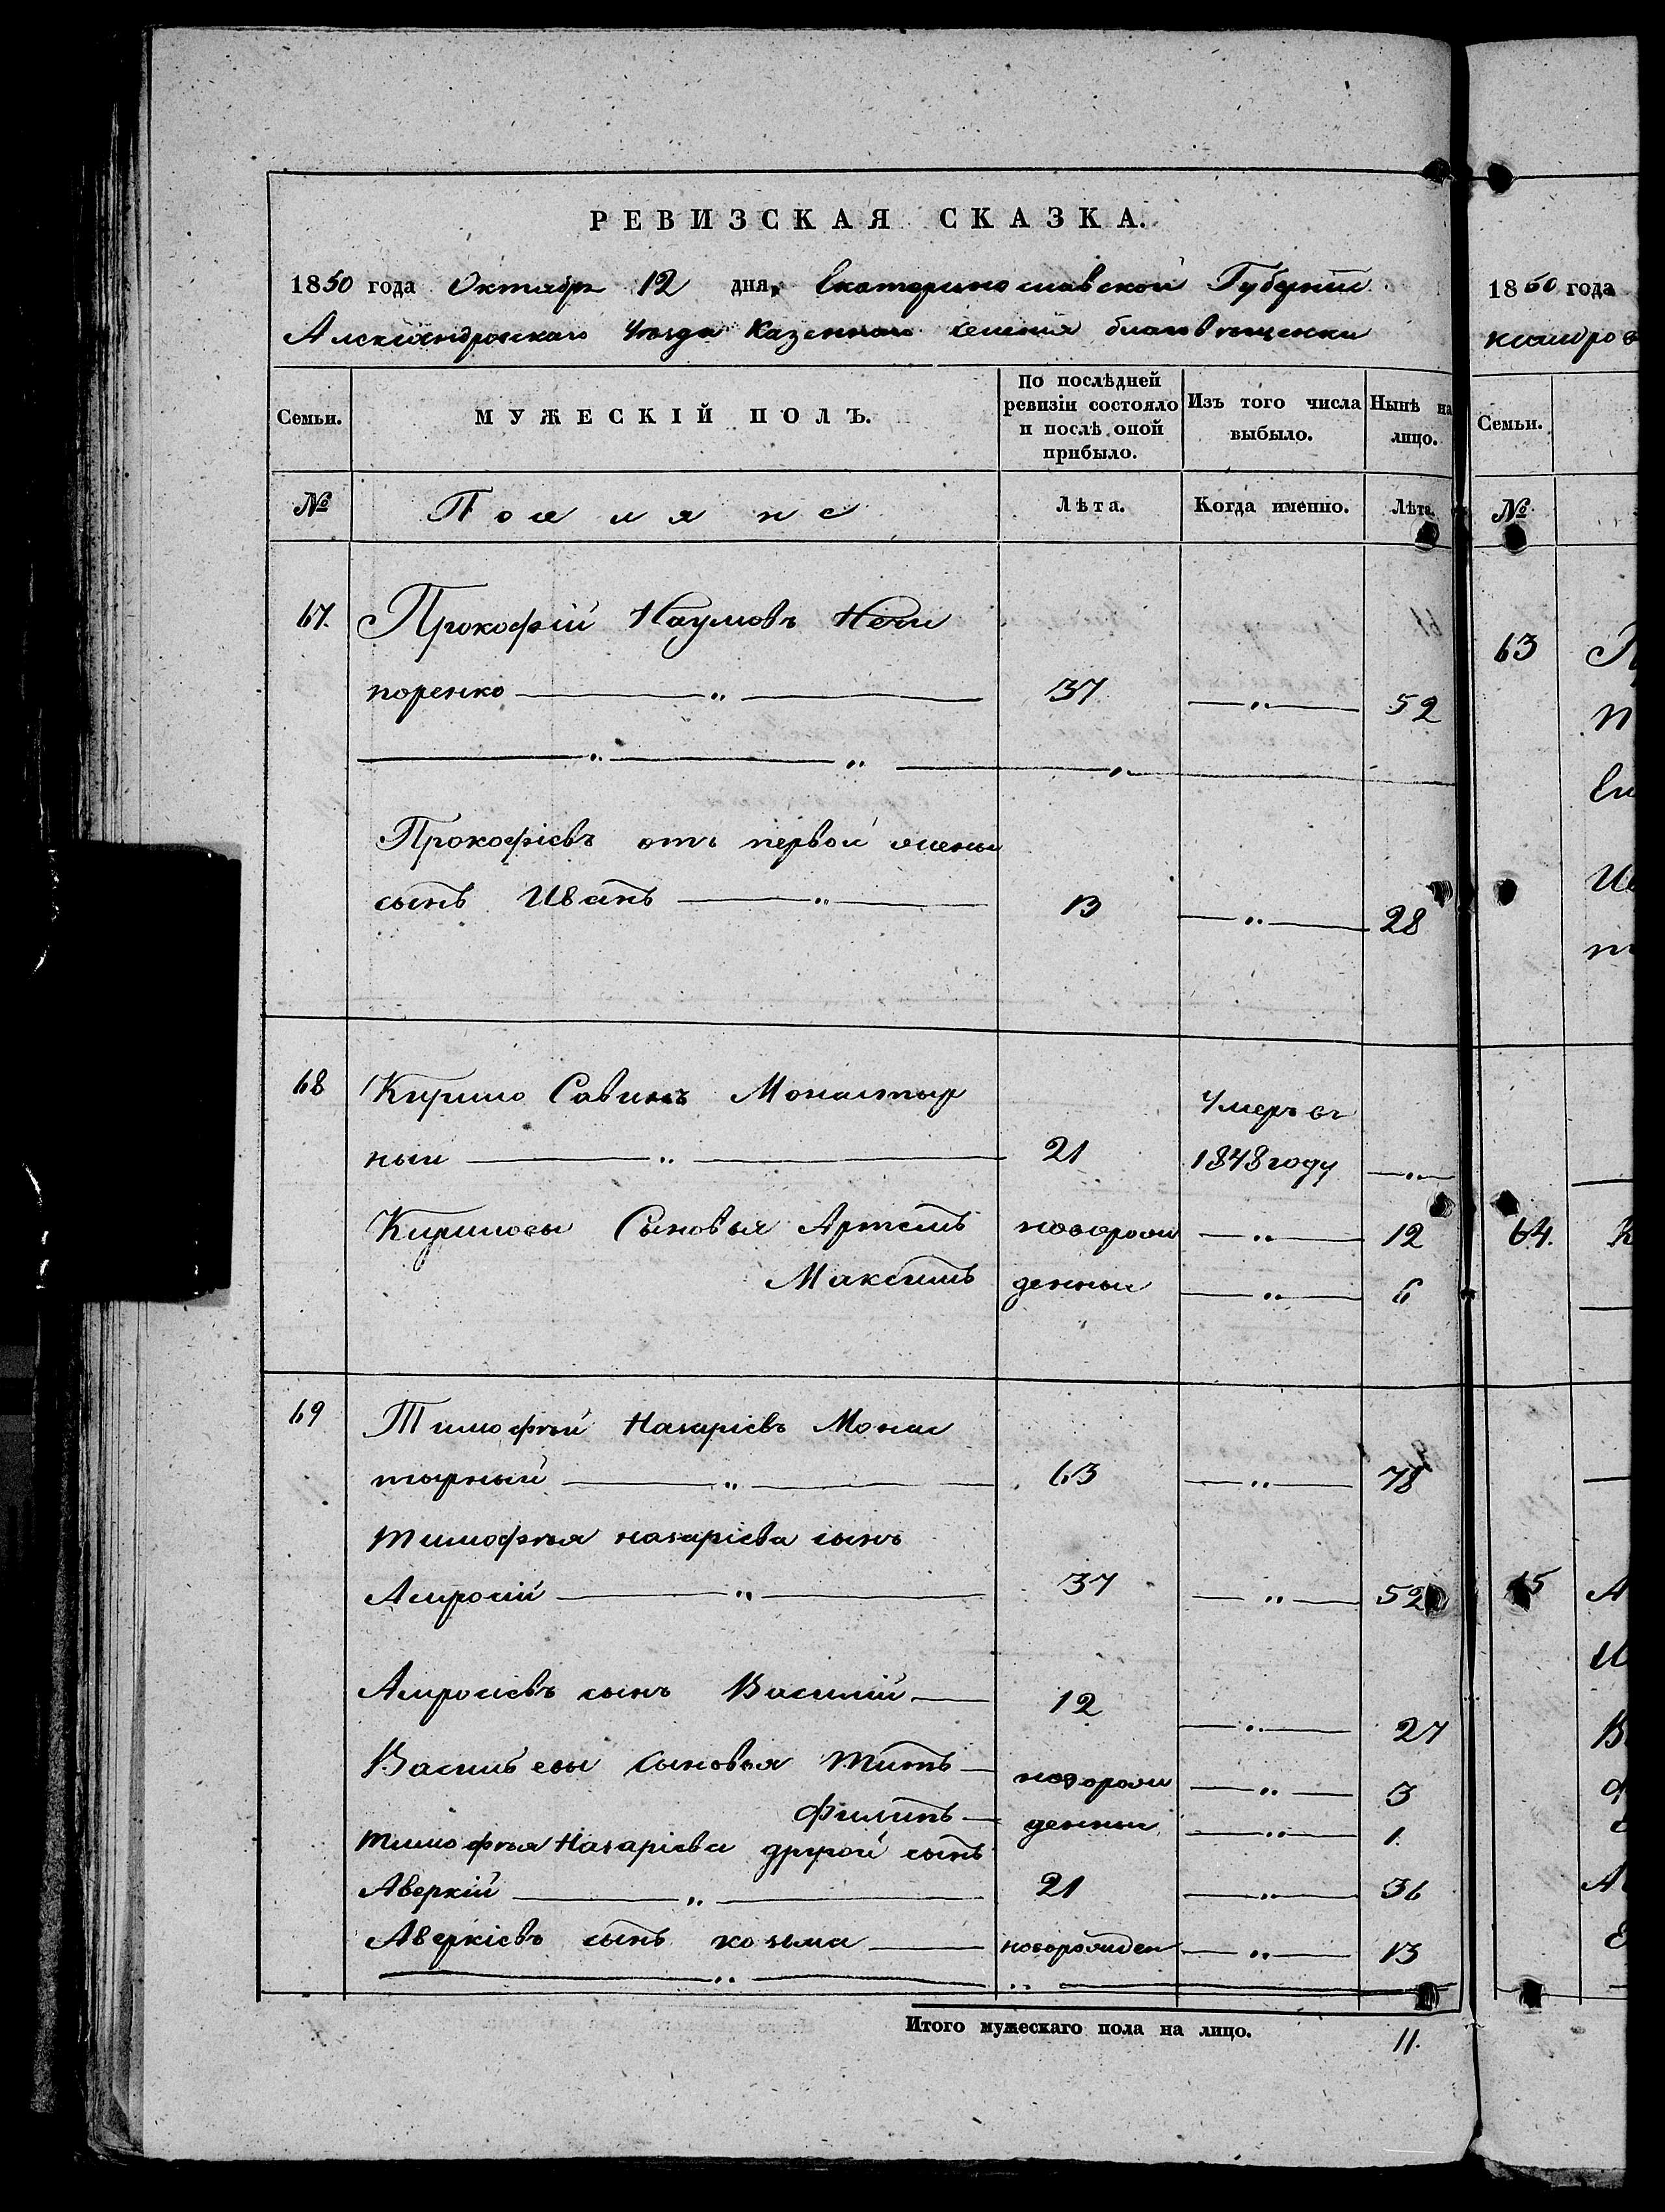 РЕВИЗСКАЯ СКАЗКА.
1850 года Октября 12 дня, Екатеринославской Губерніи
Александровскаго Уѣзда Казеннаго селенія благовѣщенки
Семьи. МУЖЕСКІЙ ПОЛЪ. По послѣдней ревизіи состояло и послѣ оной прибыло. Изъ того числа выбыло. Нынѣ на лицо.
№ Поселяне Лѣта. Когда именно. Лѣта.
67. Прокофій Наумовъ Нечи
поренко 37 52
Прокофіевъ отъ первой жены
сынъ Иванъ 13 28
68 Кирило Савинъ Монастыр Умеръ въ
ный 21 1848 году
Кириловы Сыновья Артемъ новорож 12
Максимъ денныи 6
69 Тимофѣй Назаріевъ Монас
тырный 63 78
Тимофѣя назаріева сынъ
Амросій 37 52
Амросіевъ сынъ Василій 12 27
Васильевы сыновья Титъ новорож 3
Филипъ денныи 1
Тимофѣя Назаріева другой сынъ
Аверкій 21 36
Аверкіевъ сынъ козьма новорожден 13
Итого мужескаго пола на лицо. 11.
1850 года
Семьи.
№
63
64.